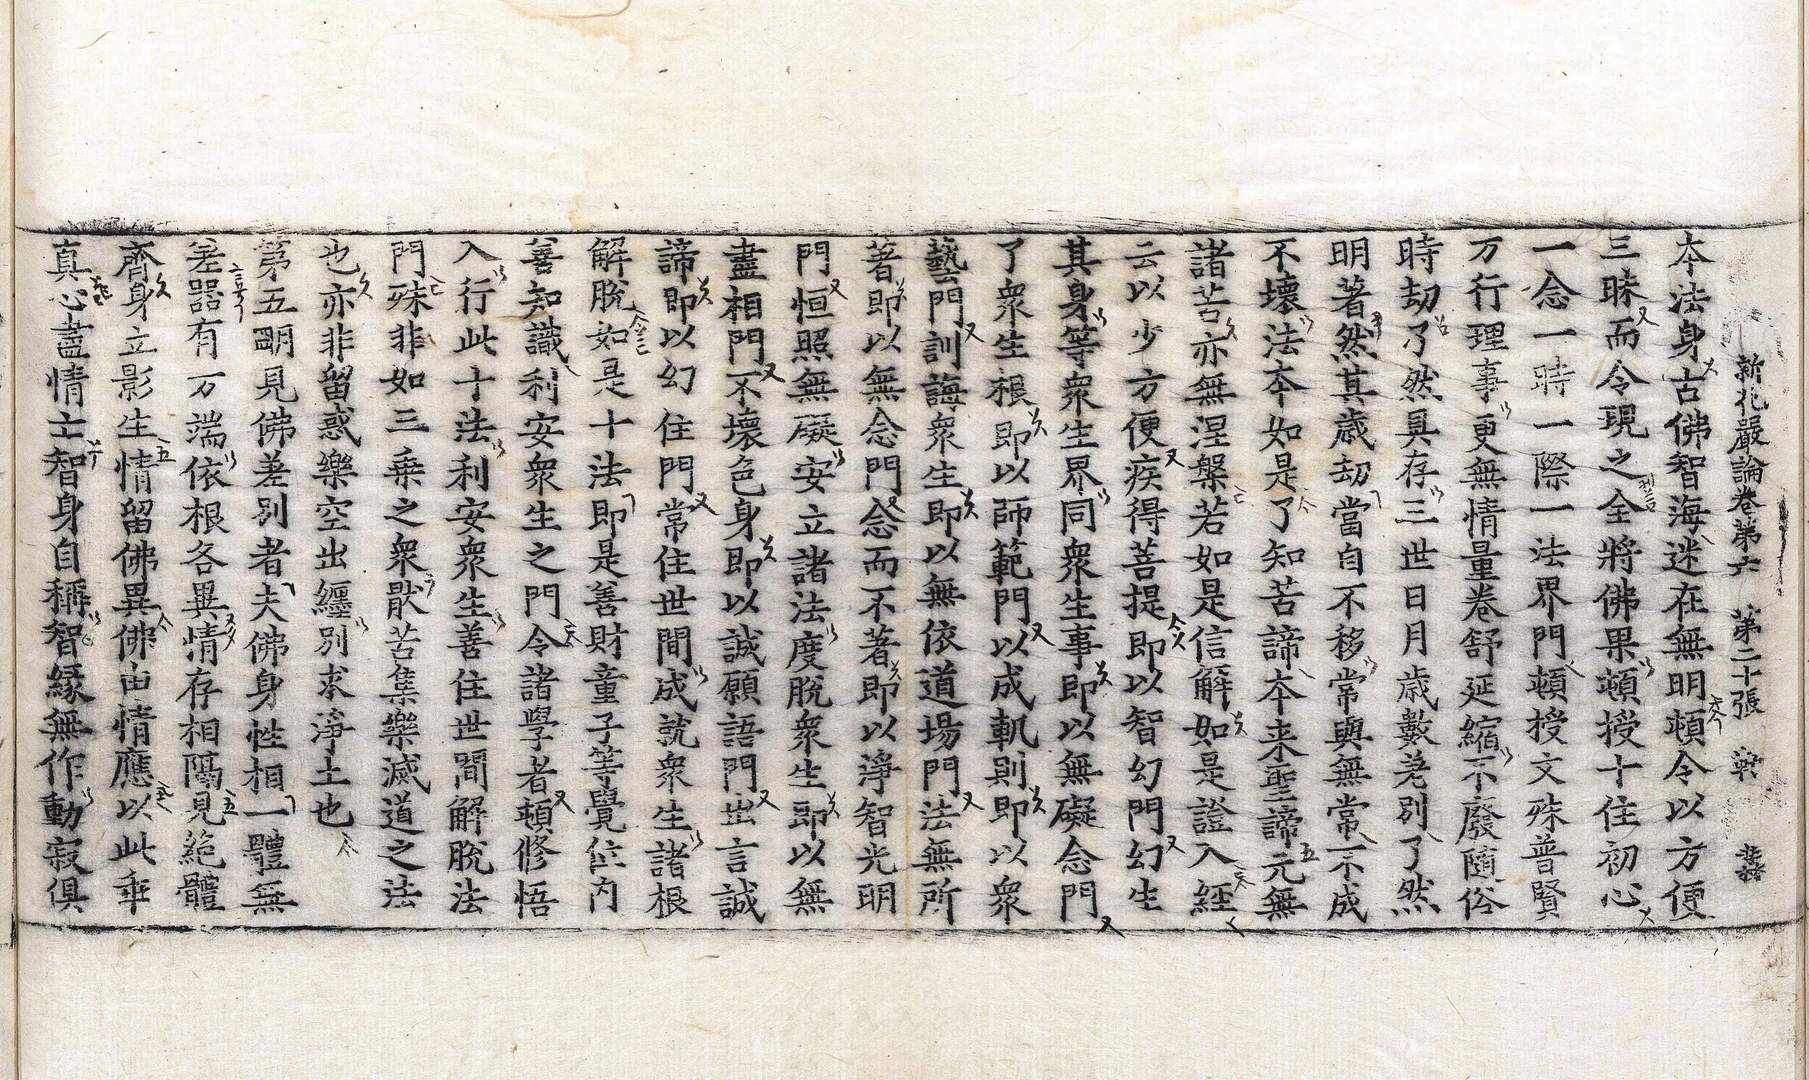 新花嚴論卷第六 第二十張
本法身古佛智海迷在無明頓令以方便
三昧而令現之全將佛果頓授十住初心
一念一時一際一法界門頓授文殊普賢
万行理事更無情量卷舒延縮不廢隨俗
時劫了然具存三世日月歲數差別了然
明著然其歲劫當自不移常與無常一不成
不壞法本如是了知苦諦本来聖諦元無
諸苦亦無涅槃若如是信解如是證入經
云以少方便疾得菩提即以智幻門幻生
其身等衆生界同衆生事即以無礙念門
了衆生根即以師範門以成軌則即以衆
藝門訓誨衆生即以無依道場門法無所
著即以無念門念而不著即以淨智光明
門恒照無礙安立諸法度脫衆生即以無
盡相門不壞色身即以誠願語門出言誠
諦即以幻住門常住世間成就衆生諸根
解脫如是十法即是善財童子等覺位內
善知識利安衆生之門令諸學者頓修悟
入行此十法利安衆生善住世間解脫法
門殊非如三乘之衆猒苦集樂滅道之法
也亦非留惑樂空出纏別求淨土也
第五明見佛差別者夫佛身性相一體無
差器有万端依根各異情存相隔見絕體
齊身立影生情留佛異佛由情應以此乖
真心盡情亡智身自稱智緣無作動寂俱